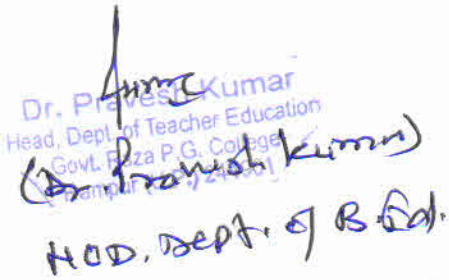 Dr. Pravesh Kumar
Head, Dept. of Teacher Education
Govt. Raza P.G. College
Rampur (U.P.)
(Dr. Pravesh Kumar)
HOD. Dept. of B.Ed.